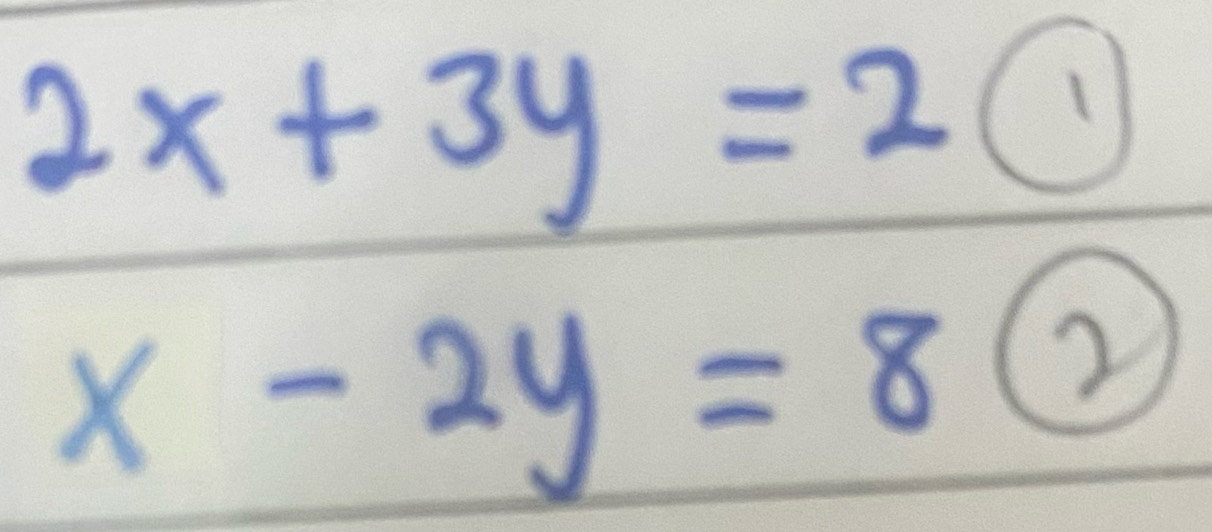 2x + 3y = 2 ①
x - 2y = 8 ②